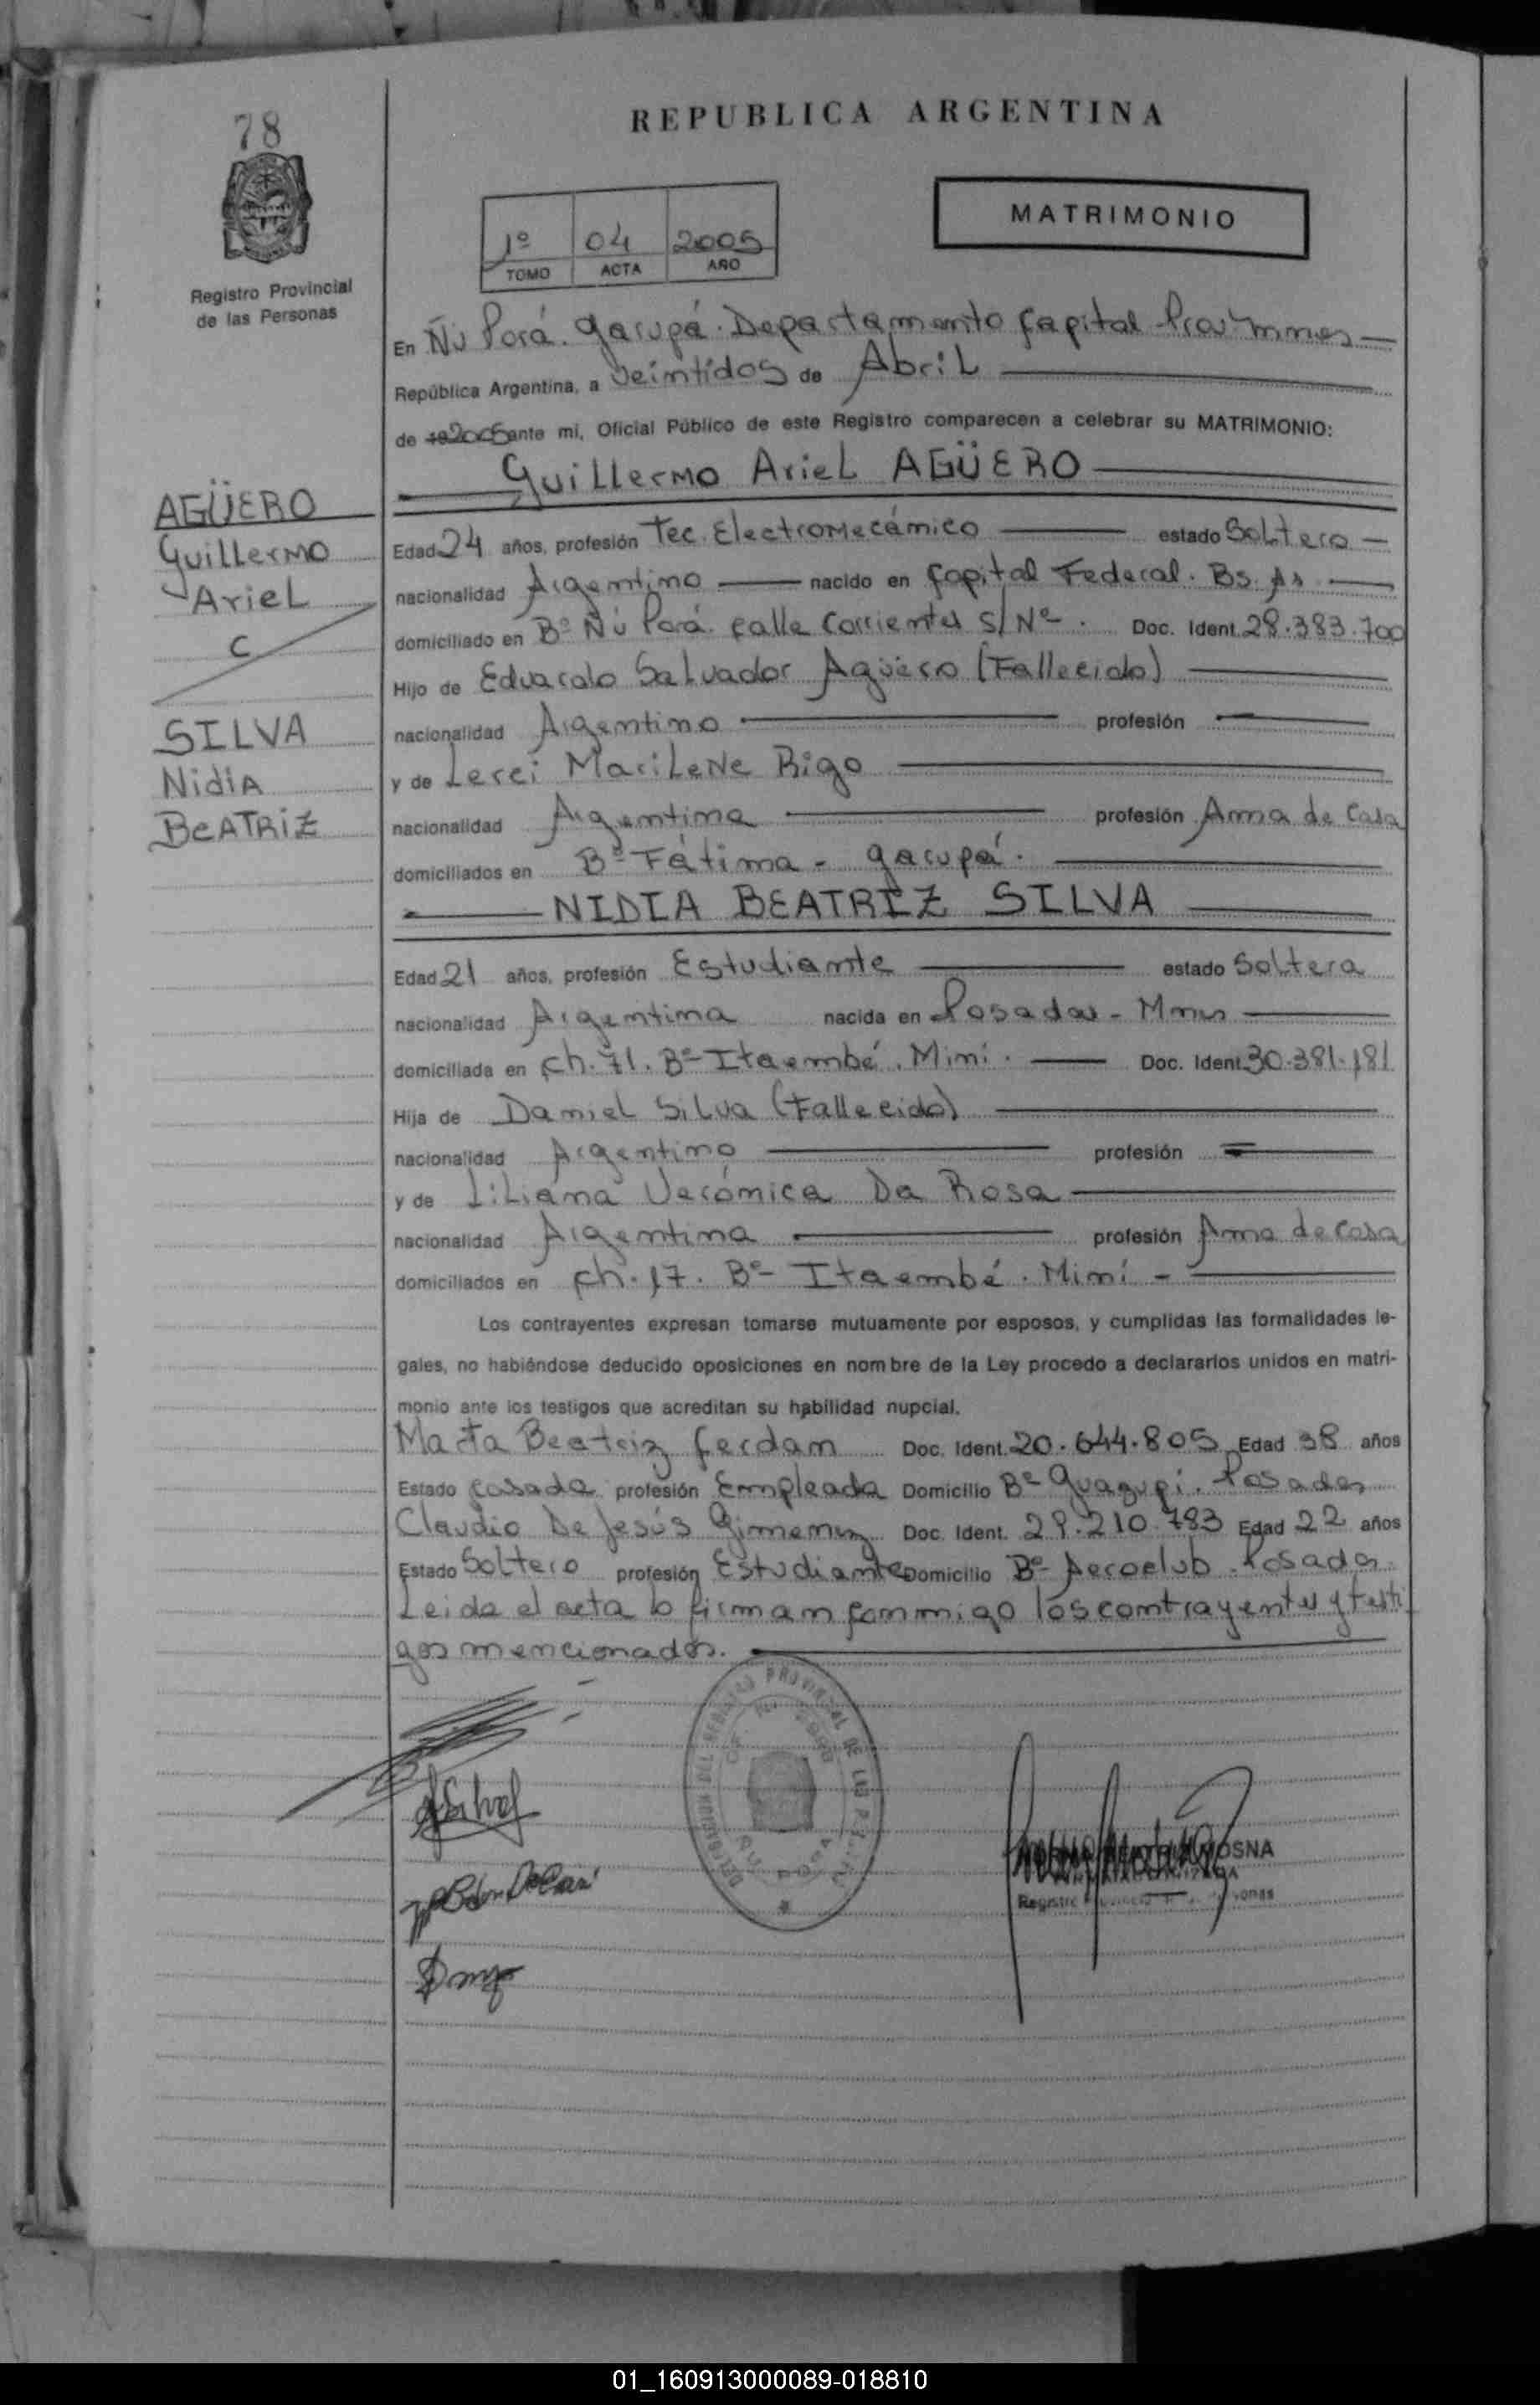 78
REPUBLICA ARGENTINA
MATRIMONIO
1º 04 2005
TOMO ACTA AÑO
Registro Provincial
de las Personas
En Ñú Porá. Garupá. Departamento Capital Prov. Mnes
República Argentina, a Veintidos de Abril
de 19 2005 ante mi, Oficial Público de este Registro comparecen a celebrar su MATRIMONIO:
Guillermo Ariel AGÜERO
AGÜERO
Guillermo
Ariel
C
SILVA
Nidia
BEATRIZ
Edad 24 años, profesión Tec. Electromecánico estado Soltero
nacionalidad Argentino nacido en Capital Federal. Bs. As
domiciliado en Bº Ñú Porá. Calle Corrientes S/Nº. Doc. Ident. 28.383.700
Hijo de Eduardo Salvador Agüero (Fallecido)
nacionalidad Argentino profesión
y de Lerei Marilene Rigo
nacionalidad Argentina profesión Ama de Casa
domiciliados en Bº Fátima - Garupá.
NIDIA BEATRIZ SILVA
Edad 21 años, profesión Estudiante estado Soltera
nacionalidad Argentina nacida en Posadas - Mnes
domiciliada en Ch. 71. Bº Itaembé. Miní. Doc. Ident. 30.381.181
Hija de Daniel Silva (Fallecido)
nacionalidad Argentino profesión
y de Liliana Verónica Da Rosa
nacionalidad Argentina profesión Ama de Casa
domiciliados en Ch. 17. Bº Itaembé. Miní -
Los contrayentes expresan tomarse mutuamente por esposos, y cumplidas las formalidades le-
gales, no habiéndose deducido oposiciones en nombre de la Ley procedo a declararlos unidos en matri-
monio ante los testigos que acreditan su habilidad nupcial.
Marta Beatriz Cerdan Doc. Ident. 20.644.805 Edad 38 años
Estado Casada profesión Empleada Domicilio Bº Guazupí. Posadas
Claudio De Jesús Gimenez Doc. Ident. 29.210.783 Edad 22 años
Estado Soltero profesión Estudiante Domicilio Bº Aeroclub. Posadas
Leida el acta lo firman conmigo los contrayentes y testi
gos mencionados.
DELEGACION DEL REGISTRO PROVINCIAL DE LAS
ÑU PORA
Silva
OSNA
Registro
01_160913000089-018810